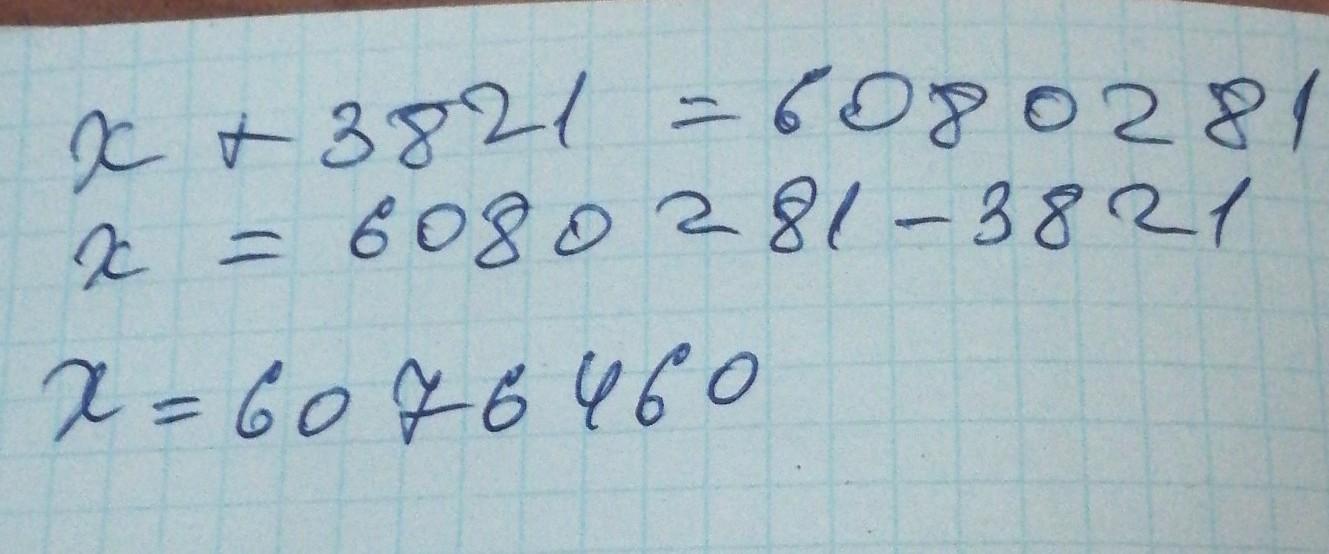 x + 3821 = 6080281
x = 6080281 - 3821
x = 6076460